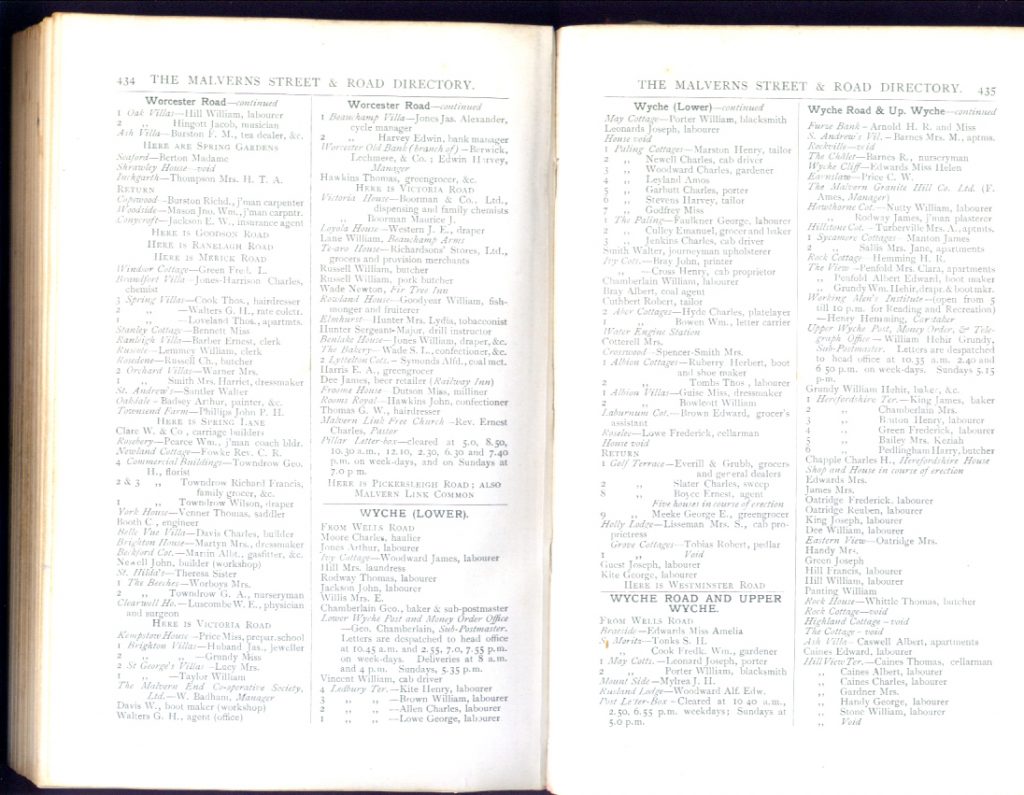 434 THE MALVERNS STREET & ROAD DIRECTORY.
Worcester Road—continued
1 Oak Villas—Hill William, labourer
2 „ Hingott Jacob, musician
Ash Villa—Burston F. M., tea dealer, &c.
HERE ARE SPRING GARDENS
Seaford—Berton Madame
Shrawley House—void
Inchgarth—Thompson Mrs. H. T. A.
RETURN
Copewood—Burston Richd., j'man carpenter
Woodside—Mason Jno. Wm., j'man carpntr.
Conycroft—Jackson E. W., insurance agent
HERE IS GOODSON ROAD
HERE IS RANELAGH ROAD
HERE IS MERICK ROAD
Windsor Cottage—Green Fred. L.
Bransfort Villa—Jones-Harrison Charles,
chemist
3 Spring Villas—Cook Thos., hairdresser
2 „ —Walters G. H., rate colctr.
1 „ —Loveland Thos., apartmts.
Stanley Cottage—Bennett Miss
Ranleigh Villa—Barber Ernest, clerk
—Lemmey William, clerk
Rosedene—Russell Ch., butcher
2 Orchard Villas—Warner Mrs.
1 „ Smith Mrs. Harriet, dressmaker
St. Andrew's—Sandler Walter
Oakdale—Badsey Arthur, painter, &c.
Townsend Farm—Phillips John P. H.
HERE IS SPRING LANE
Clare W. & Co, carriage builders
Rosebery—Pearce Wm., j'man coach bldr.
Newland Cottage—Fowke Rev. C. R.
4 Commercial Buildings—Towndrow Geo.
H., florist
2 & 3 „ Towndrow Richard Francis,
family grocer, &c.
1 „ Towndrow Wilson, draper
York House—Venner Thomas, saddler
Booth C., engineer
Belle Vue Villa—Davis Charles, builder
Brighton House—Martyn Mrs., dressmaker
Beckford Cot.—Martin Albt., gasfitter, &c.
Newell John, builder (workshop)
St. Hilda's—Theresa Sister
1 The Beeches—Worboys Mrs.
2 „ Towndrow G. A., nurseryman
Clearwell Ho.—Luscombe W. E., physician
and surgeon
HERE IS VICTORIA ROAD
Kempstow House—Price Miss, prepar. school
1 Brighton Villas—Huband Jas., jeweller
2 „ „ —Grundy Miss
2 St George's Villas—Lucy Mrs.
1 „ —Taylor William
The Malvern End Co-operative Society,
Ltd.—W. Badham, Manager
Davis W., boot maker (workshop)
Walters G. H., agent (office)
Worcester Road—continued
1 Beauchamp Villa—Jones Jas. Alexander,
cycle manager
2 „ Harvey Edwin, bank manager
Worcester Old Bank (branch of)—Berwick,
Lechmere, & Co.; Edwin Harvey,
Manager
Hawkins Thomas, greengrocer, &c.
HERE IS VICTORIA ROAD
Victoria House—Boorman & Co., Ltd.,
dispensing and family chemists
„ Boorman Maurice J.
Loyola House—Western J. E., draper
Lane William, Beauchamp Arms
Te-aro House—Richardsons' Stores, Ltd.,
grocers and provision merchants
Russell William, butcher
Russell William, pork butcher
Wade Newton, Fir Tree Inn
Rowland House—Goodyear William, fish-
monger and fruiterer
Elmhurst—Hunter Mrs. Lydia, tobacconist
Hunter Sergeant-Major, drill instructor
Benlake House—Jones William, draper, &c.
The Bakery—Wade S. I., confectioner, &c.
2 Lyttelton Cots.—Symonds Alfd., coal met.
Harris E. A., greengrocer
Dee James, beer retailer (Railway Inn)
Froome House—Dutson Miss, milliner
Rooms Royal—Hawkins John, confectioner
Thomas G. W., hairdresser
Malvern Link Free Church—Rev. Ernest
Charles, Pastor
Pillar Letter-box—cleared at 5.0, 8.50,
10.30 a.m., 12.10, 2.30, 6.30 and 7.40
p.m. on week-days, and on Sundays at
7.0 p.m.
HERE IS PICKERSLEIGH ROAD; ALSO
MALVERN LINK COMMON
WYCHE (LOWER).
FROM WELLS ROAD
Moore Charles, haulier
Jones Arthur, labourer
Ivy Cottage—Woodward James, labourer
Hill Mrs. laundress
Rodway Thomas, labourer
Jackson John, labourer
Willis Mrs. E.
Chamberlain Geo., baker & sub-postmaster
Lower Wyche Post and Money Order Office
—Geo. Chamberlain, Sub-Postmaster.
Letters are despatched to head office
at 10.45 a.m. and 2.55, 7.0, 7.55 p.m.
on week-days. Deliveries at 8 a.m.
and 4 p.m. Sundays, 5.35 p.m.
Vincent William, cab driver
4 Ledbury Ter.—Kite Henry, labourer
3 „ „ —Brown William, labourer
2 „ „ —Allen Charles, labourer
1 „ „ —Lowe George, labourer
THE MALVERNS STREET & ROAD DIRECTORY. 435
Wyche (Lower)—continued
May Cottage—Porter William, blacksmith
Leonards Joseph, labourer
House void
1 Paling Cottages—Marston Henry, tailor
2 „ Newell Charles, cab driver
3 „ Woodward Charles, gardener
4 „ Leyland Amos
5 „ Garbutt Charles, porter
6 „ Stevens Harvey, tailor
7 „ Godfrey Miss
1 The Paling—Faulkner George, labourer
2 „ Culley Emanuel, grocer and baker
3 „ Jenkins Charles, cab driver
Smith Walter, journeyman upholsterer
Ivy Cott.—Bray John, printer
„ —Cross Henry, cab proprietor
Chamberlain William, labourer
Bray Albert, coal agent
Cuthbert Robert, tailor
2 Aber Cottages—Hyde Charles, platelayer
1 „ Bowen Wm., letter carrier
Water Engine Station
Cotterell Mrs.
Crosswood—Spencer-Smith Mrs.
1 Albion Cottages—Ruberry Herbert, boot
and shoe maker
2 „ Tombs Thos, labourer
1 Albion Villas—Guise Miss, dressmaker
2 „ Bowlcott William
Laburnum Cot.—Brown Edward, grocer's
assistant
Roselee—Lowe Frederick, cellarman
House void
RETURN
1 Golf Terrace—Everill & Grubb, grocers
and general dealers
2 „ Slater Charles, sweep
8 „ Boyce Ernest, agent
Five houses in course of erection
9 „ Meeke George E., greengrocer
Holly Lodge—Lisseman Mrs. S., cab pro-
prietress
Grove Cottages—Tobias Robert, pedlar
1 „ Void
Guest Joseph, labourer
Kite George, labourer
HERE IS WESTMINSTER ROAD
WYCHE ROAD AND UPPER
WYCHE.
FROM WELLS ROAD
Braeside—Edwards Miss Amelia
St Moritz—Tonks S. H.
„ Cook Fredk. Wm., gardener
1 May Cotts.—Leonard Joseph, porter
2 „ Porter William, blacksmith
Mount Side—Mylrea J. H.
Rusland Lodge—Woodward Alf. Edw.
Post Letter-Box—Cleared at 10 40 a.m.,
2.50, 6.55 p.m. weekdays; Sundays at
5.0 p.m.
Wyche Road & Up. Wyche—continued
Furze Bank—Arnold H. R. and Miss
S. Andrew's Vil.—Barnes Mrs. M., aptms.
Rockville—void
The Châlet—Barnes R., nurseryman
Wyche Cliff—Edwards Miss Helen
Earnslaw—Price C. W.
The Malvern Granite Hill Co. Ltd. (F.
Ames, Manager)
Hawthorne Cot.—Nutty William, labourer
„ Rodway James, j'man plasterer
Hillstone Cot.—Turberville Mrs. A., aptmts.
1 Sycamore Cottages—Manton James
2 „ Sallis Mrs. Jane, apartments
Rock Cottage—Hemming H. R.
The View—Penfold Mrs. Clara, apartments
„ Penfold Albert Edward, boot maker
„ Grundy Wm. Hehir, drapr. & boot mkr.
Working Men's Institute—(open from 5
till 10 p.m. for Reading and Recreation)
—Henry Hemming, Caretaker
Upper Wyche Post, Money Order, & Tele-
graph Office—William Hehir Grundy,
Sub-Postmaster. Letters are despatched
to head office at 10.35 a.m. 2.40 and
6 50 p.m. on week-days. Sundays 5.15
p.m.
Grundy William Hehir, baker, &c.
1 Herefordshire Ter.—King James, baker
2 „ Chamberlain Mrs.
3 „ Bruton Henry, labourer
4 „ Green Frederick, labourer
5 „ Bailey Mrs. Keziah
6 „ Pedlingham Harry, butcher
Chapple Charles H., Herefordshire House
Shop and House in course of erection
Edwards Mrs.
James Mrs.
Oatridge Frederick, labourer
Oatridge Reuben, labourer
King Joseph, labourer
Dee William, labourer
Eastern View—Oatridge Mrs.
Handy Mrs.
Green Joseph
Hill Francis, labourer
Hill William, labourer
Panting William
Rock House—Whittle Thomas, butcher
Rock Cottage—void
Highland Cottage—void
The Cottage—void
Ash Villa—Caswell Albert, apartments
Caines Edward, labourer
Hill View Ter.—Caines Thomas, cellarman
„ Caines Albert, labourer
„ Caines Charles, labourer
„ Gardner Mrs.
„ Handy George, labourer
„ Stone William, labourer
„ Void